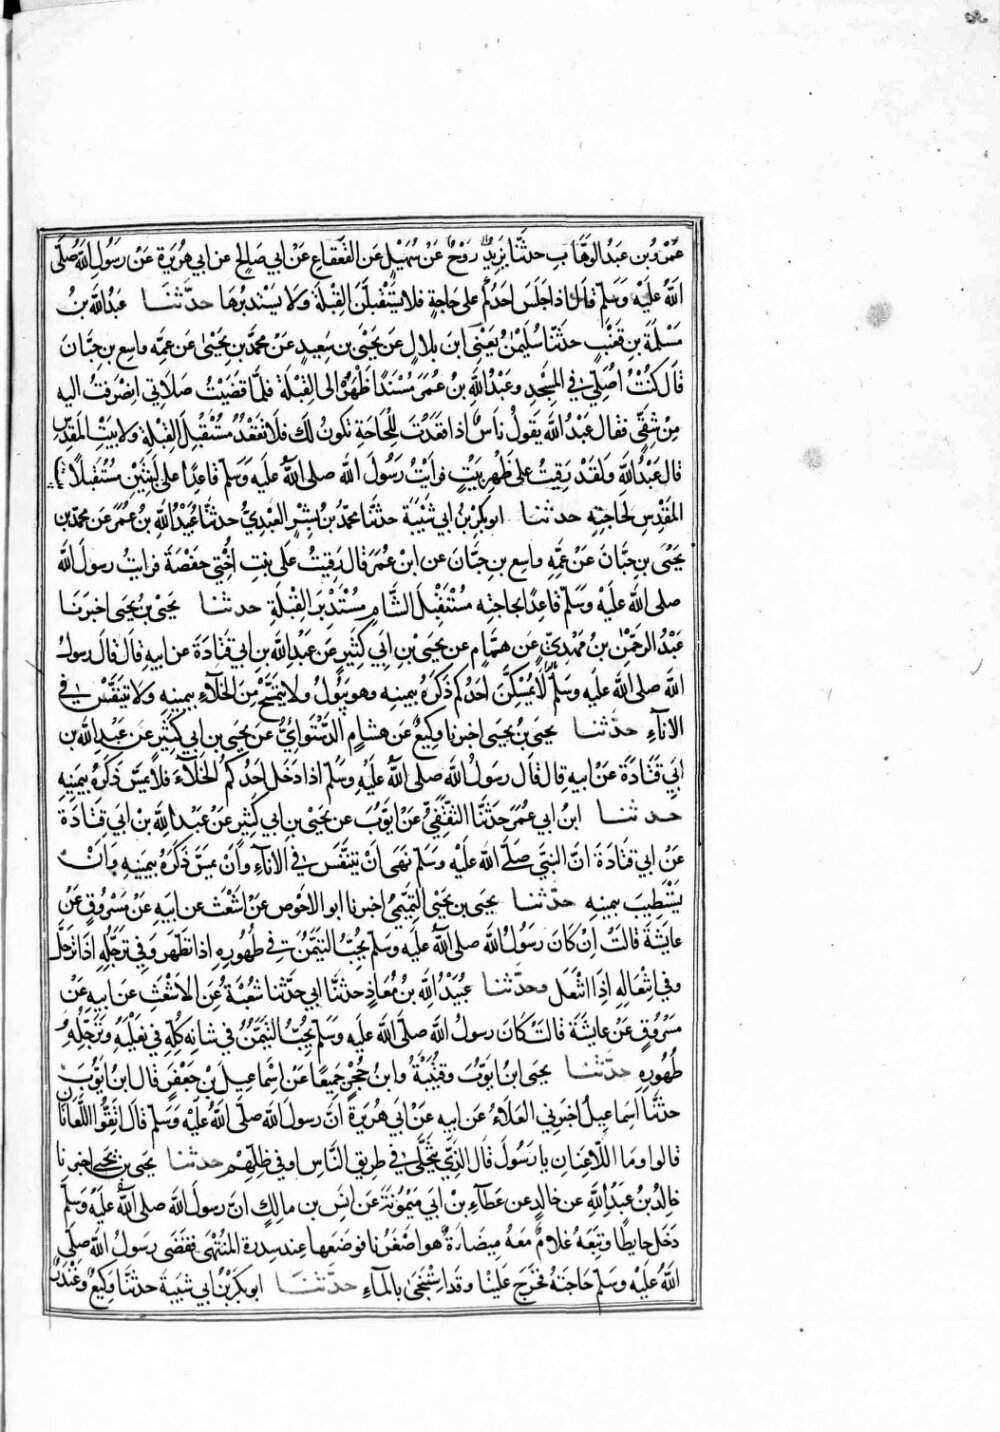 عَمْرُو بن عَبْدِ الوهَّابِ حدثَنَا يَزِيدُ رَوْحٌ عَنْ سُهَيْلٍ عَن القَعْقَاعِ عَنْ ابي صَالِحٍ عن ابي هُرَيرَة عَنْ رسُولِ الله صلى
الله عليْه وسَلم قال اذا جَلَسَ احَدُكُم على حَاجَةٍ فلا يَسْتَقْبِلَنَّ القِبْلَةَ وَلا يَسْتَدْبِرْهَا حدّثنا عبدُ الله بنُ
مَسْلَمَةَ بنِ قَعْنَبٍ حدثنا سُلَيْمٰنُ يَعْنِي ابنَ بلالٍ عن يَحْيَى بن سَعِيدٍ عَنْ محمَّد بنِ يَحْيَى عَن عَمِّه واسِع بن حَبَّانَ
قال كنتُ اُصَلّي في المسْجِدِ وعَبْدُ اللهِ بنُ عُمَرَ مُسْنِدًا ظَهْرَهُ الى القِبْلَة فلمَّا قضَيْتُ صَلاتي انصَرَفتُ اليه
مِنْ شِقّي فقال عَبْدُ الله يقولُ نَاسٌ اذا قعَدْتَ لِلْحَاجَةِ تكونُ لكَ فلا تَقْعُدْ مُسْتَقْبِلَ القِبْلَةِ ولا بَيْتِ المَقدِسِ
قال عَبْدُ اللهِ ولَقَدْ رَقِيتُ على ظَهْرِ بَيْتٍ فرايْتُ رسُولَ الله صلى الله عليه وسَلم قاعِدًا على لَبِنَتَيْنِ مُسْتَقبِلًا
المَقْدِسِ لحَاجَتِهِ حدثنا ابو بكرِ بنُ ابي شَيْبَةَ حدثنا محمّدُ بنُ بِشْرٍ العَبْدِيُّ حدثنا عُبَيْدُ اللهِ بنُ عُمَرَ عن محمّد بن
يَحْيَى بن حَبَّانَ عَنْ عَمّه واسِع بن حَبَّانَ عن ابن عُمَرَ قال رَقِيتُ على بَيْتِ اُخْتِي حَفْصَةَ فرايتُ رسولَ الله
صلى الله عليْه وسَلم قَاعِدًا لحاجَتِه مُسْتَقْبِلَ الشّامِ مُسْتَدْبِرَ القِبْلَةِ حدثنا يَحْيَى بنُ يَحيى اخبرَنا
عَبْدُ الرَّحْمٰن بنُ مَهْدِيٍّ عَن هَمَّامٍ عن يَحْيَى بنِ ابي كَثِيرٍ عن عَبْدِ الله بنِ ابي قَتَادَةَ عن ابيهِ قالَ قالَ رسولُ
الله صلى الله عليه وسَلم لا يُمْسِكَنَّ احَدُكم ذَكَرَهُ بيمِينِه وهو يَبُولُ ولا يَتَمَسَّحْ مِنَ الخَلَاءِ بيمِينِه ولا يَتَنَفَّسْ في
الاناءِ حدّثنا يحيى بنُ يحيى اخبرنا وَكِيعٌ عَن هِشَامٍ الدَّسْتُوَائيّ عَن يحيى بنِ ابي كَثِيرٍ عَن عَبدِ الله بن
ابي قَتَادَةَ عَنْ ابيهِ قالَ قالَ رسولُ الله صلى الله عليه وسلم اذا دخَلَ احدُكم الخَلَاءَ فلا يَمَسَّ ذَكَرَهُ بيَمِينِهِ
حدثنا ابنُ ابي عُمَرَ حَدثنا الثّقَفِيُّ عَنْ ايّوبَ عن يَحْيَى بنِ ابي كَثِيرٍ عَنْ عَبْدِ الله بنِ ابي قَتَادَةَ
عَنْ ابي قتادَةَ انَّ النبيَّ صلّى الله عليْه وسَلم نَهَى انْ يتَنَفَّسَ في الاناءِ واَنْ يَمَسَّ ذَكَرَهُ بيمِينهِ وَانْ
يَسْتَطِيبَ بيمِينِهِ حدّثنا يحيى بن يَحْيَى التّمِيمِيُّ اخبرنا ابو الاحْوَصِ عَنْ اشْعَثَ عن ابيهِ عَنْ مَسْرُوقٍ عَنْ
عايشَةَ قالَتْ اِنْ كانَ رَسُولُ الله صلى الله عليه وسلم يُحِبُّ التَّيَمُّنَ في طُهُورِهِ اِذا تطَهّرَ وفي تَرَجُّلِهِ اذا ترَجَّلَ
وفي انْتِعَالِهِ اِذَا انْتَعَل وحدّثنا عُبَيْدُ اللهِ بن مُعَاذٍ حدثنا ابي حَدثنا شُعْبَةُ عَنِ الاشْعَثِ عَن ابيهِ عَنْ
مَسْرُوقٍ عَنْ عايشَةَ قالتْ كانَ رسولُ الله صلّى الله عليه وسلم يُحِبُّ التَّيَمُّنَ في شانِه كُلِّهِ في نعْلَيْهِ وتَرَجُّلِهِ و
طُهُورِهِ حدّثنا يحيى ابنُ ايّوبَ وقُتَيْبَةُ وابنُ حُجْرٍ جَمِيعًا عَنْ اسْمَاعِيلَ بنِ جَعْفَرٍ قال ابنُ ايّوبَ
حدثنا اسماعيلُ اخبرني العَلَاءُ عَن ابيهِ عَنْ ابي هُريْرَةَ انّ رسولَ الله صلّى الله عليْه وسَلم قال اتّقُوا اللَّعَّانَيْنِ
قالوا وما اللّاعِنانِ يا رسُولَ قال الذي يَتَخَلَّى في طرِيقِ النَّاسِ او في ظِلّهِمْ حدثنا يحيى بنُ يَحيى اخبرنا
خالِدُ بنُ عَبْدِ اللهِ عن خالدٍ عن عَطَاءِ بْنِ ابي مَيْمُونَةَ عَن انَسِ بن مالِكٍ انّ رسولَ الله صلى الله عليه وسلم
دَخَلَ حايِطًا وتبِعَهُ غُلامٌ مَعَهُ مِيضَاةٌ هو اصْغَرُنا فوضعَها عِند سِدرة المُنْتَهَى فقَضَى رسولُ الله صلى
الله عليْه وسلم حَاجَتَهُ فخرَجَ عليْنا وقد اسْتَنْجَى بالمَاءِ حدّثنا ابو بكرِ بنُ ابي شَيبَة حدثنا وَكِيعٌ وغُنْدَرٌ